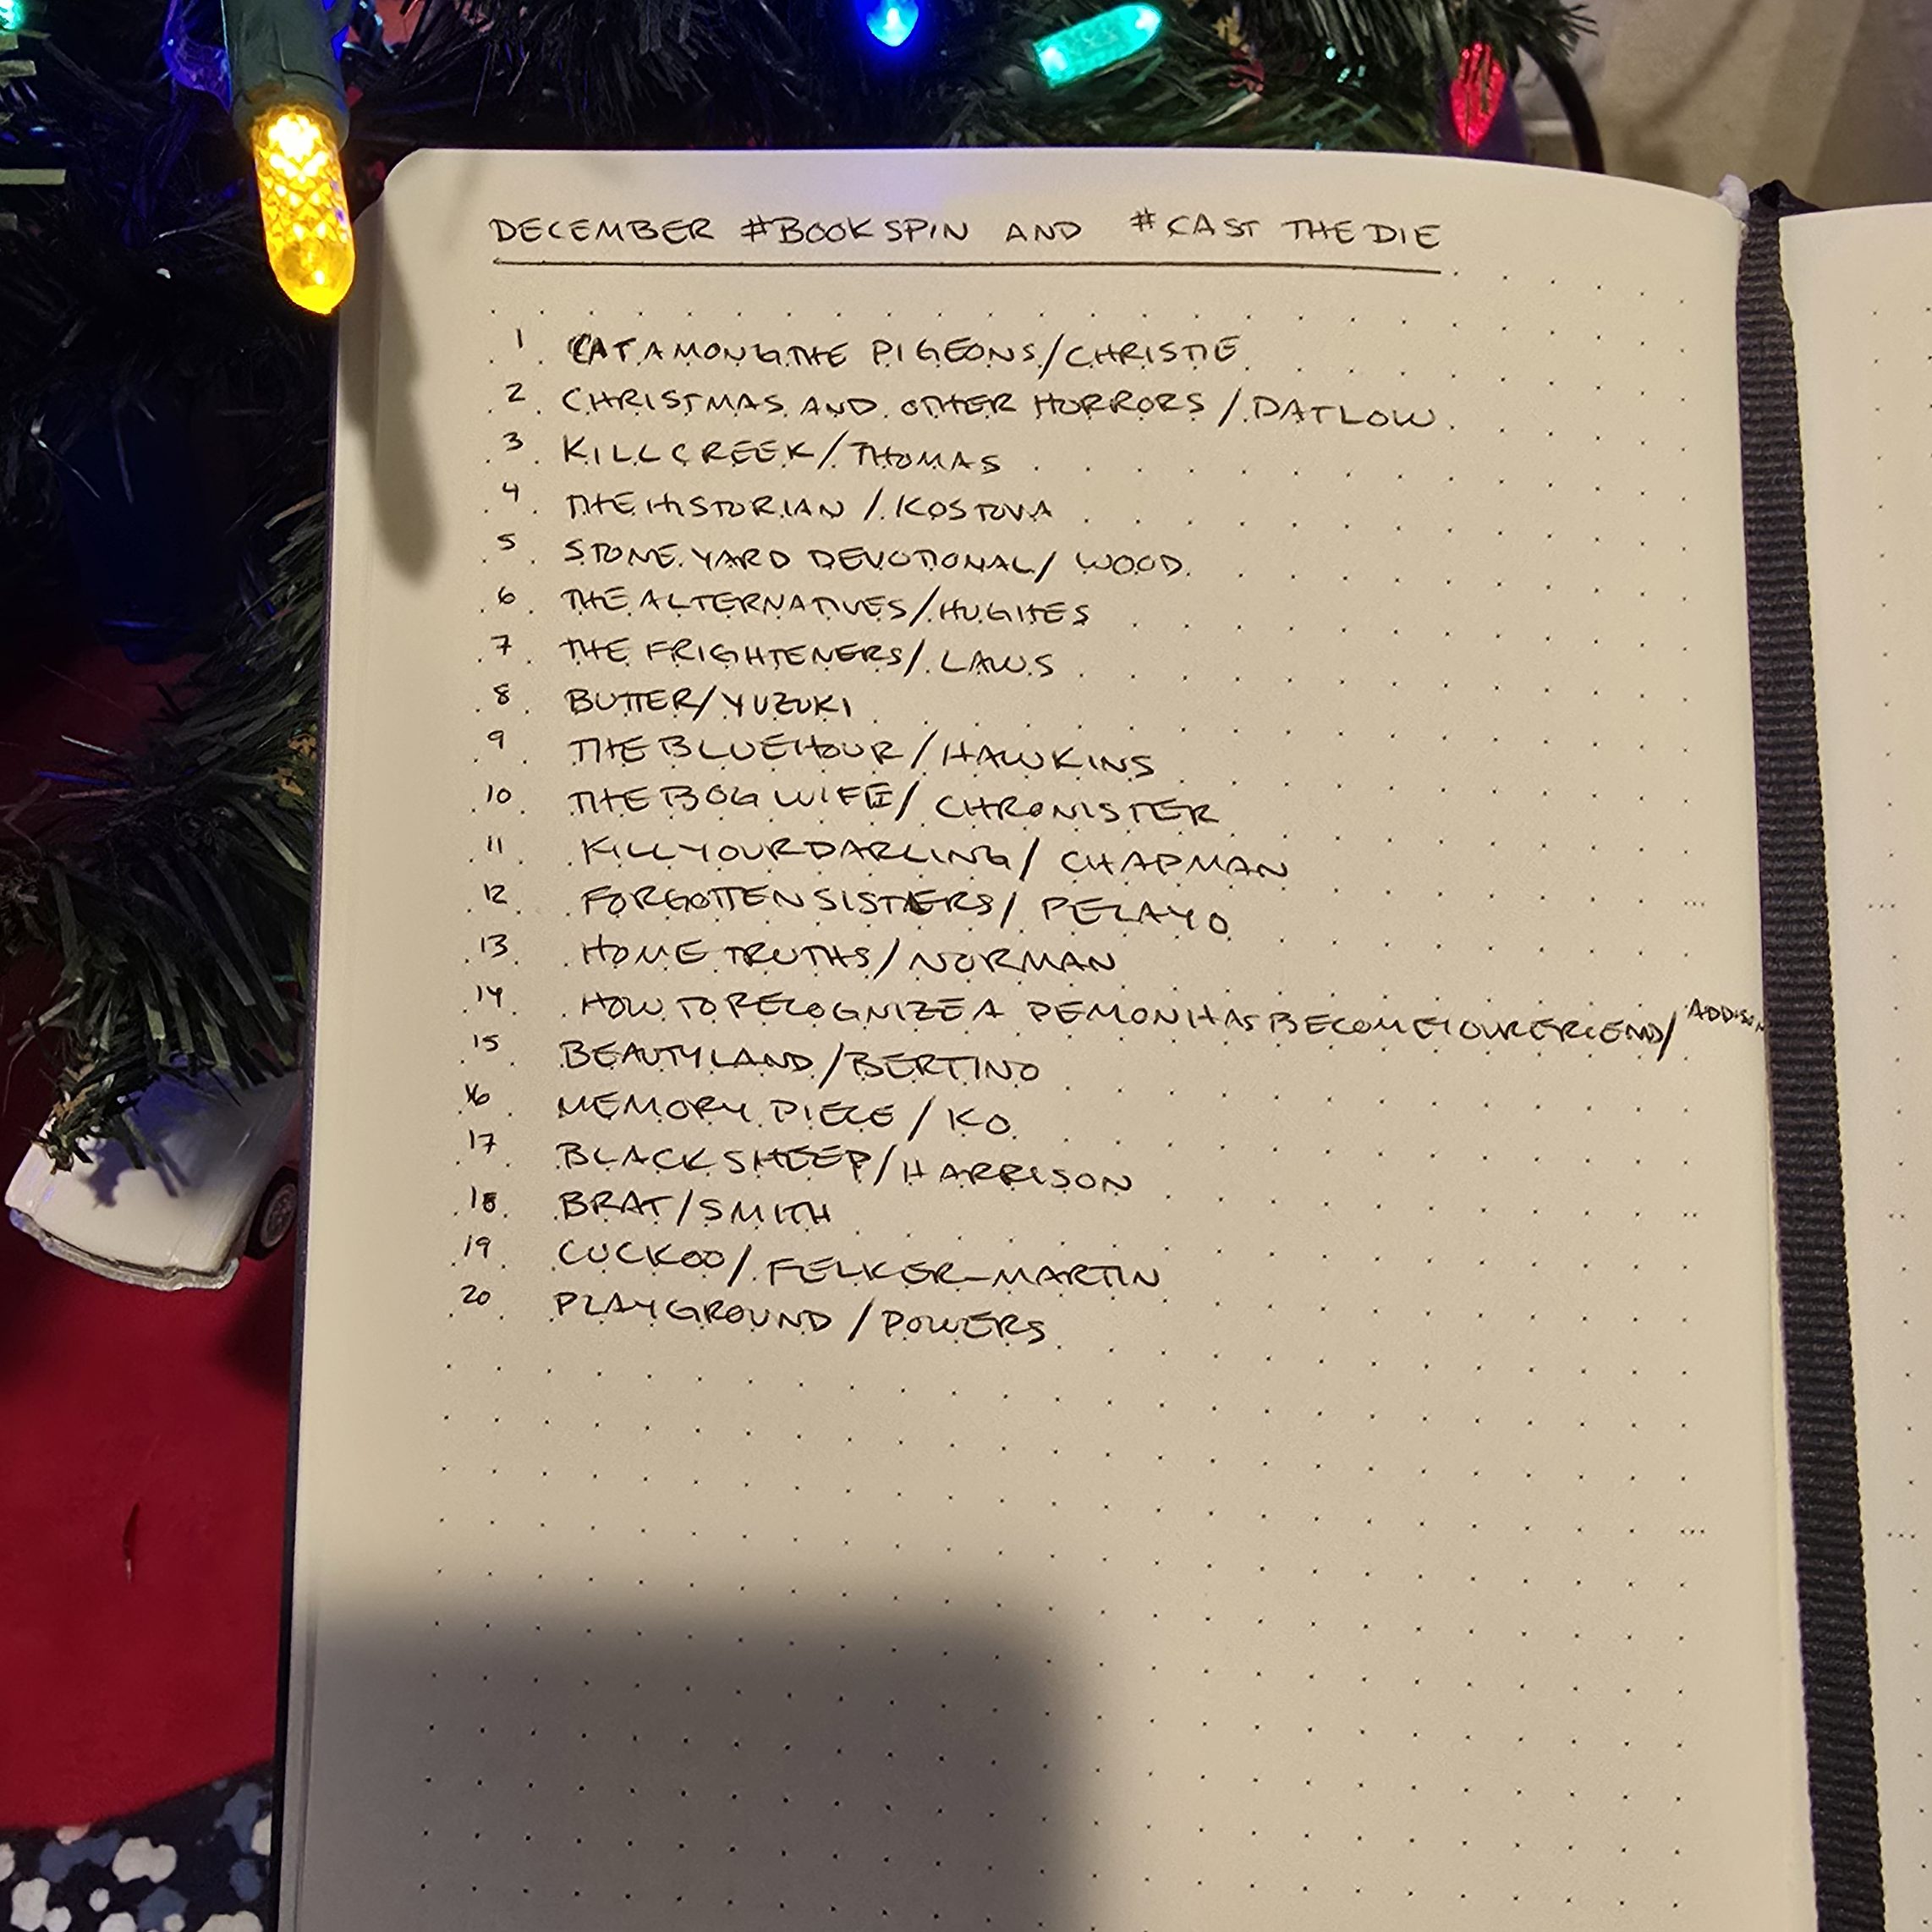 DECEMBER #BOOKSPIN AND #CAST THE DIE
1 CAT AMONG THE PIGEONS/CHRISTIE
2 CHRISTMAS AND OTHER HORRORS/DATLOW
3 KILL CREEK/THOMAS
4 THE HISTORIAN/KOSTOVA
5 STONE YARD DEVOTIONAL/WOOD
6 THE ALTERNATIVES/HUGHES
7 THE FRIGHTENERS/LAWS
8 BUTTER/YUZUKI
9 THE BLUE HOUR/HAWKINS
10 THE BOG WIFE/CHRONISTER
11 KILL YOUR DARLING/CHAPMAN
12 FORGOTTEN SISTERS/PELAYO
13 HOME TRUTHS/NORMAN
14 HOW TO RECOGNIZE A DEMON HAS BECOME YOUR FRIEND/ADDISON
15 BEAUTYLAND/BERTINO
16 MEMORY PIECE/KO
17 BLACK SHEEP/HARRISON
18 BRAT/SMITH
19 CUCKOO/FELKER-MARTIN
20 PLAYGROUND/POWERS